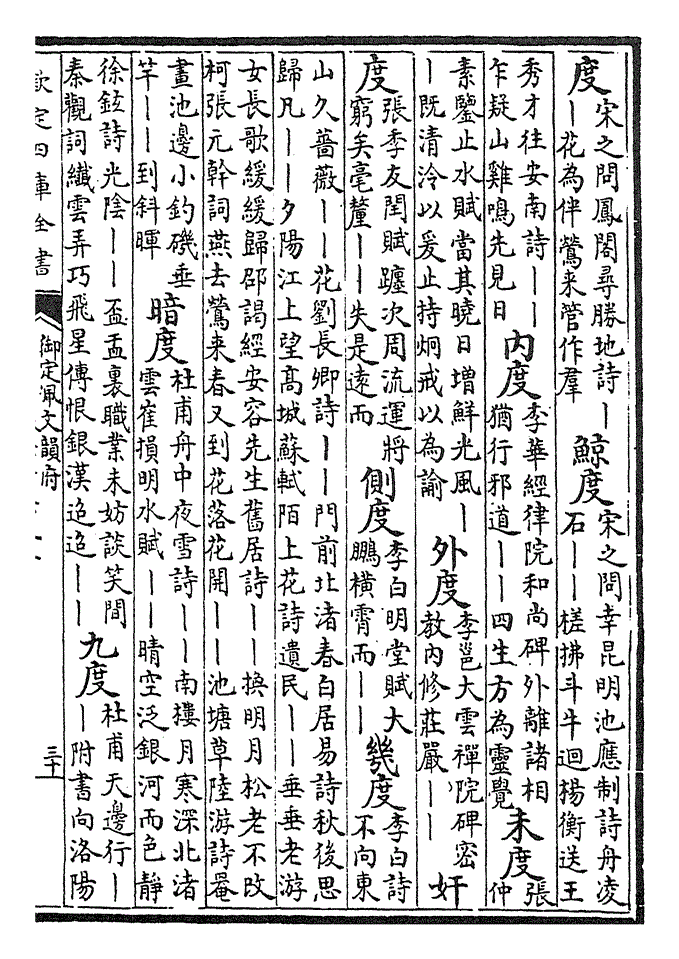 度 宋之問鳳閣尋勝地詩丨
丨花為伴鶯来管作羣
鯨度 宋之問幸昆明池應制詩舟凌
石丨丨槎拂斗牛迴楊衡送王
秀才往安南詩丨丨
乍疑山雞鳴先見日
內度 李華經律院和尚碑外離諸相
猶行邪道丨丨四生方為靈覺
未度 張
仲
素鑒止水賦當其曉日增鮮光風丨
丨既清泠以爰止持炯戒以為諭
外度 李邕大雲禪院碑密
教內修莊嚴丨丨
奸
度 張季友閏賦躔次周流運將
窮矣毫釐丨丨失是遠而
側度 李白明堂賦大
鵬橫霄而丨丨
幾度 李白詩
不向東
山久薔薇丨丨花劉長卿詩丨丨門前北渚春白居易詩秋後思
歸凡丨丨夕陽江上望髙城蘇軾陌上花詩遺民丨丨垂垂老游
女長歌緩緩歸邵謁經安容先生舊居詩丨丨換明月松老不改
柯張元幹詞燕去鶯来春又到花落花開丨丨池塘草陸游詩罨
畫池邊小釣磯垂
竿丨丨到斜暉
暗度 杜甫舟中夜雪詩丨丨南樓月寒深北渚
雲崔損明水賦丨丨晴空泛銀河而色靜
徐鉉詩光陰丨丨盃盂裏職業未妨談笑間
秦觀詞纖雲弄巧飛星傳恨銀漢迢迢丨丨
九度 杜甫天邊行丨
丨附書向洛陽
欽定四庫全書
御定佩文韻府
三十